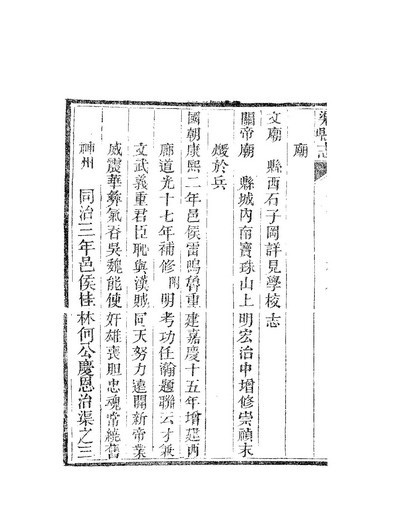 渠縣志
廟
文廟 縣西石子岡詳見學校志
關帝廟 縣城內南寶珠山上明宏治中增修崇禎末
燬於兵
國朝康熙二年邑侯雷鳴魯重建嘉慶十五年增建西
廊道光十七年補修 閣 明考功任瀚題聯云才兼
文武義重君臣恥與漢賊同天努力遠開新帝業
威震華彝氣吞吳魏能使奸雄喪胆忠魂常繞舊
神州 同治三年邑侯桂林何公慶恩治渠之三